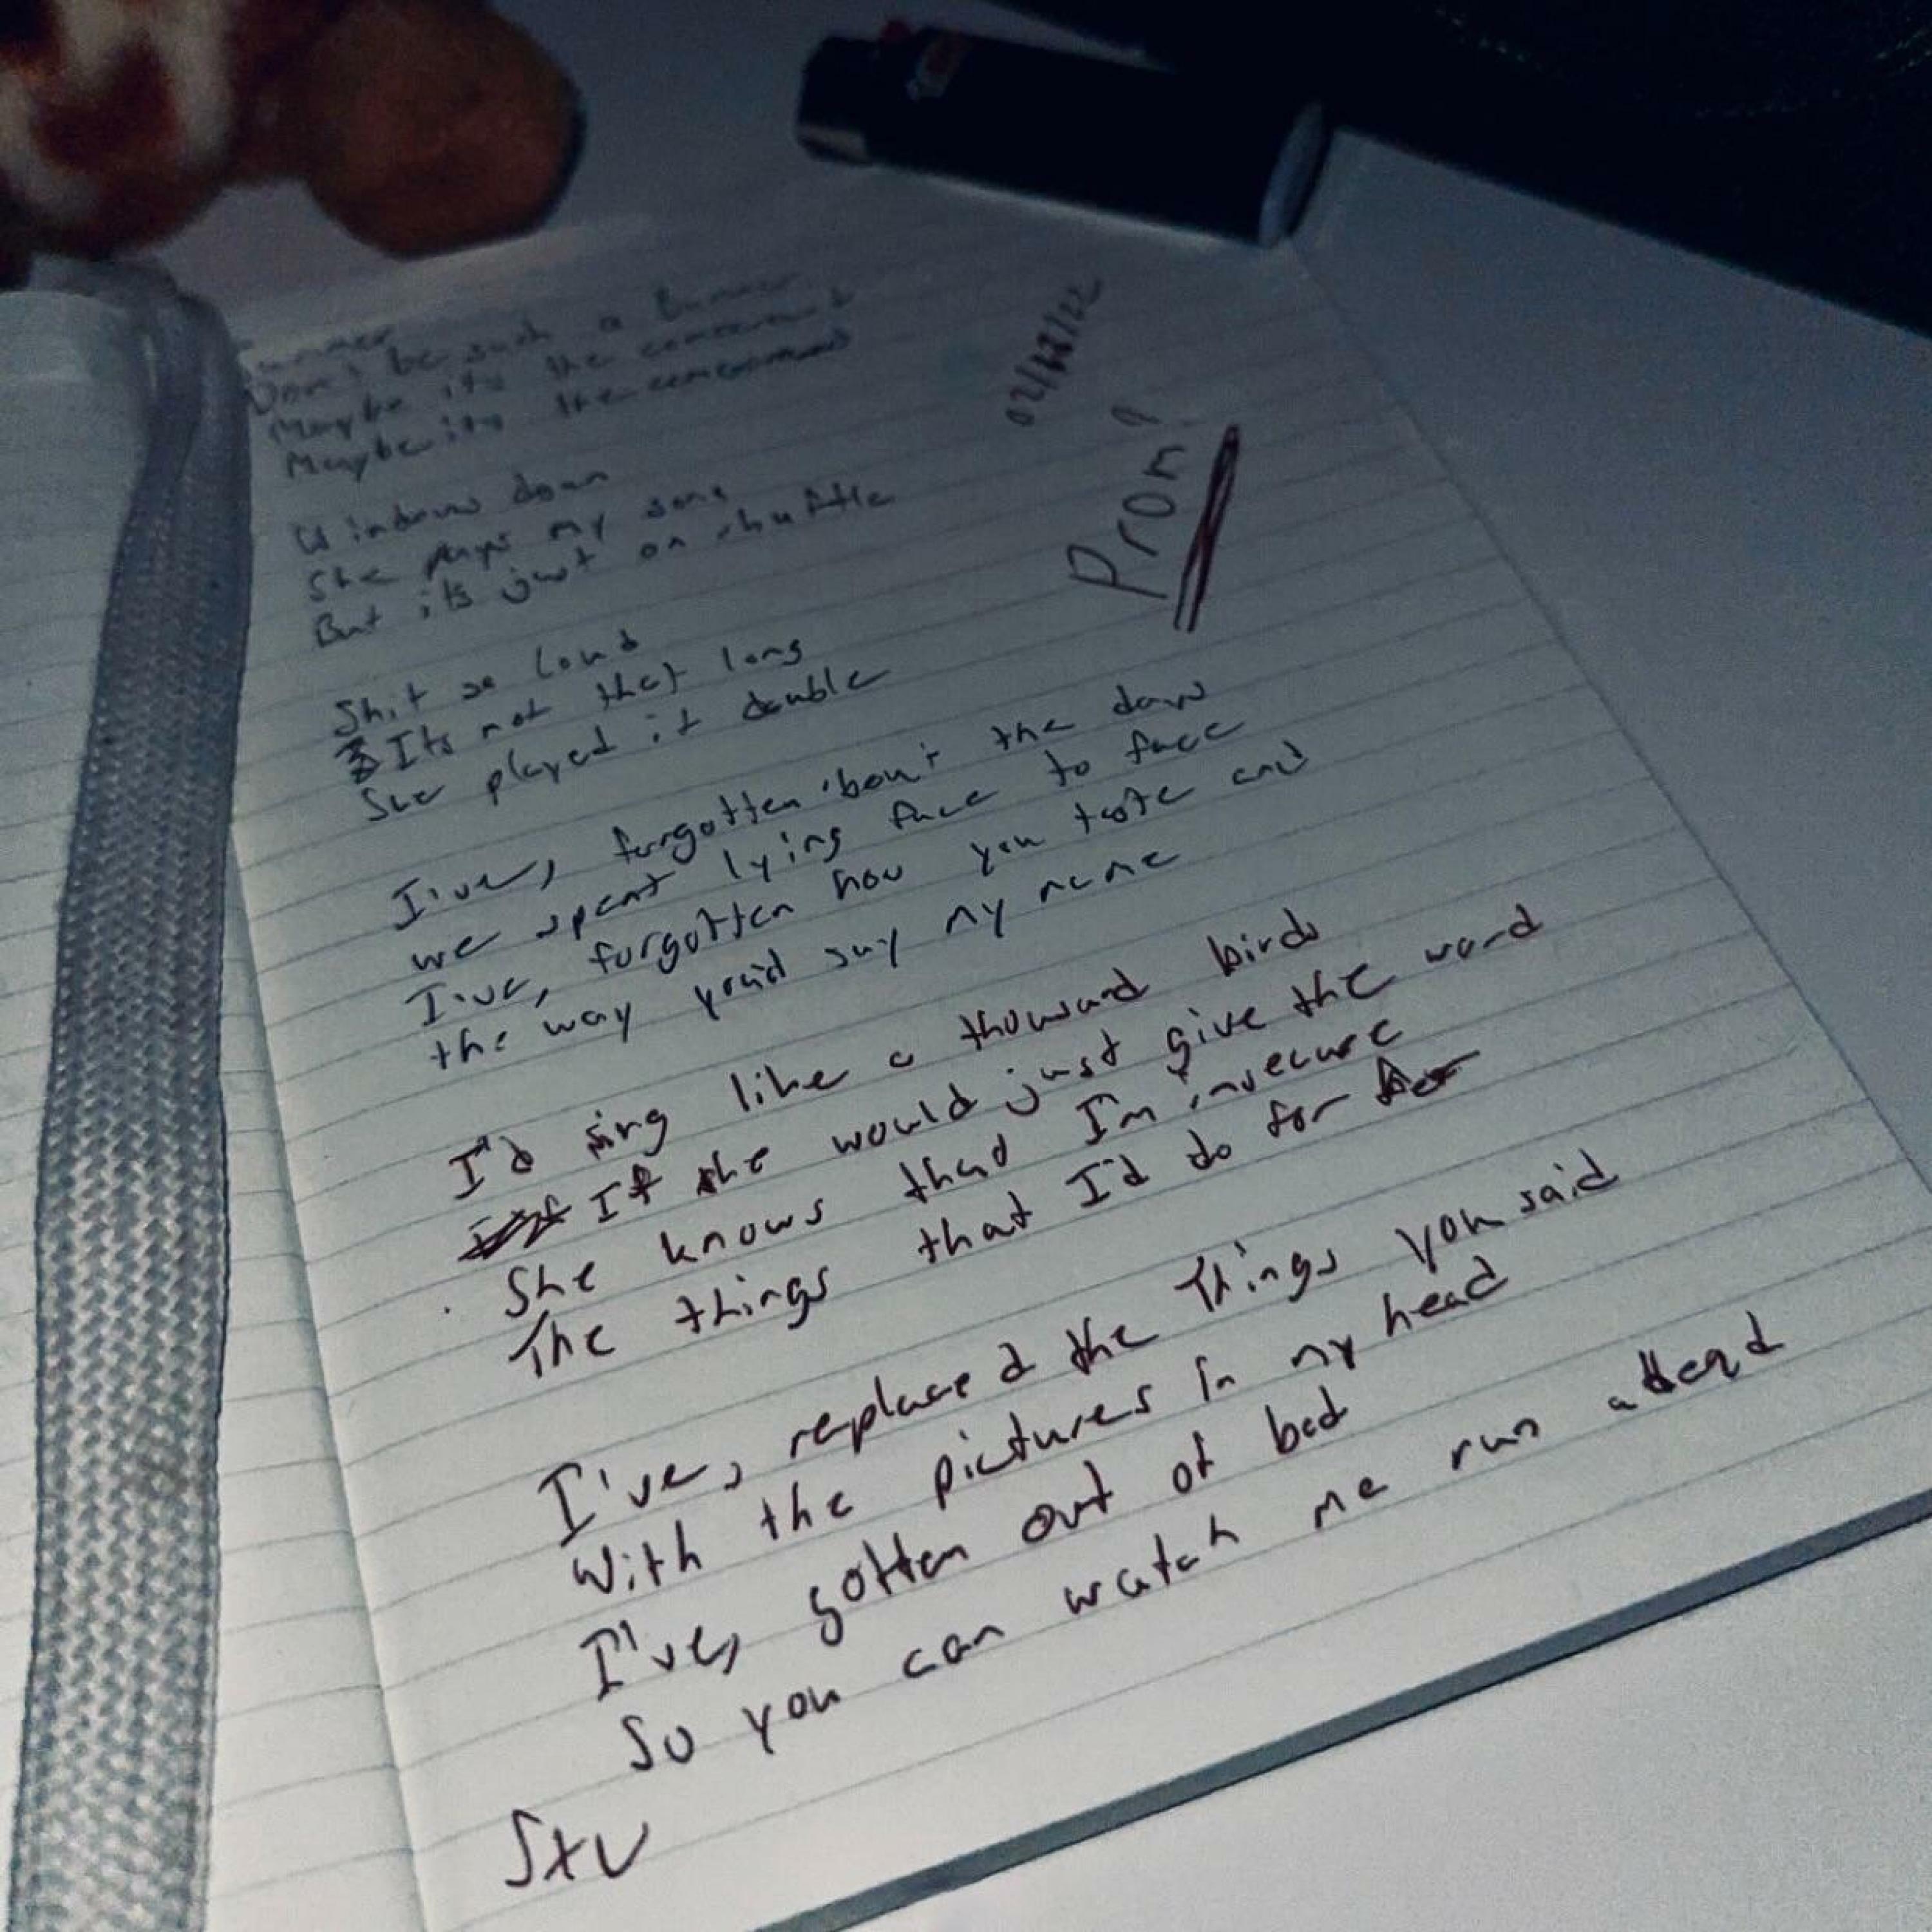 Summer
Don't be such a Bummer
Maybe its the
Maybe its the
Windows down
She plays my song
But its just on shuffle
Shit so loud
Its not that long
She played it double
I've, forgotten 'bout the days
we spent lying face to face
I've, forgotten how you taste and
the way you'd say my name
I'd sing like a thousand birds
If she would just give the word
She knows that I'm insecure
The things that I'd do for her
I've, replaced the things you said
With the pictures in my head
I've, gotten out of bed
So you can watch me run
Prom!